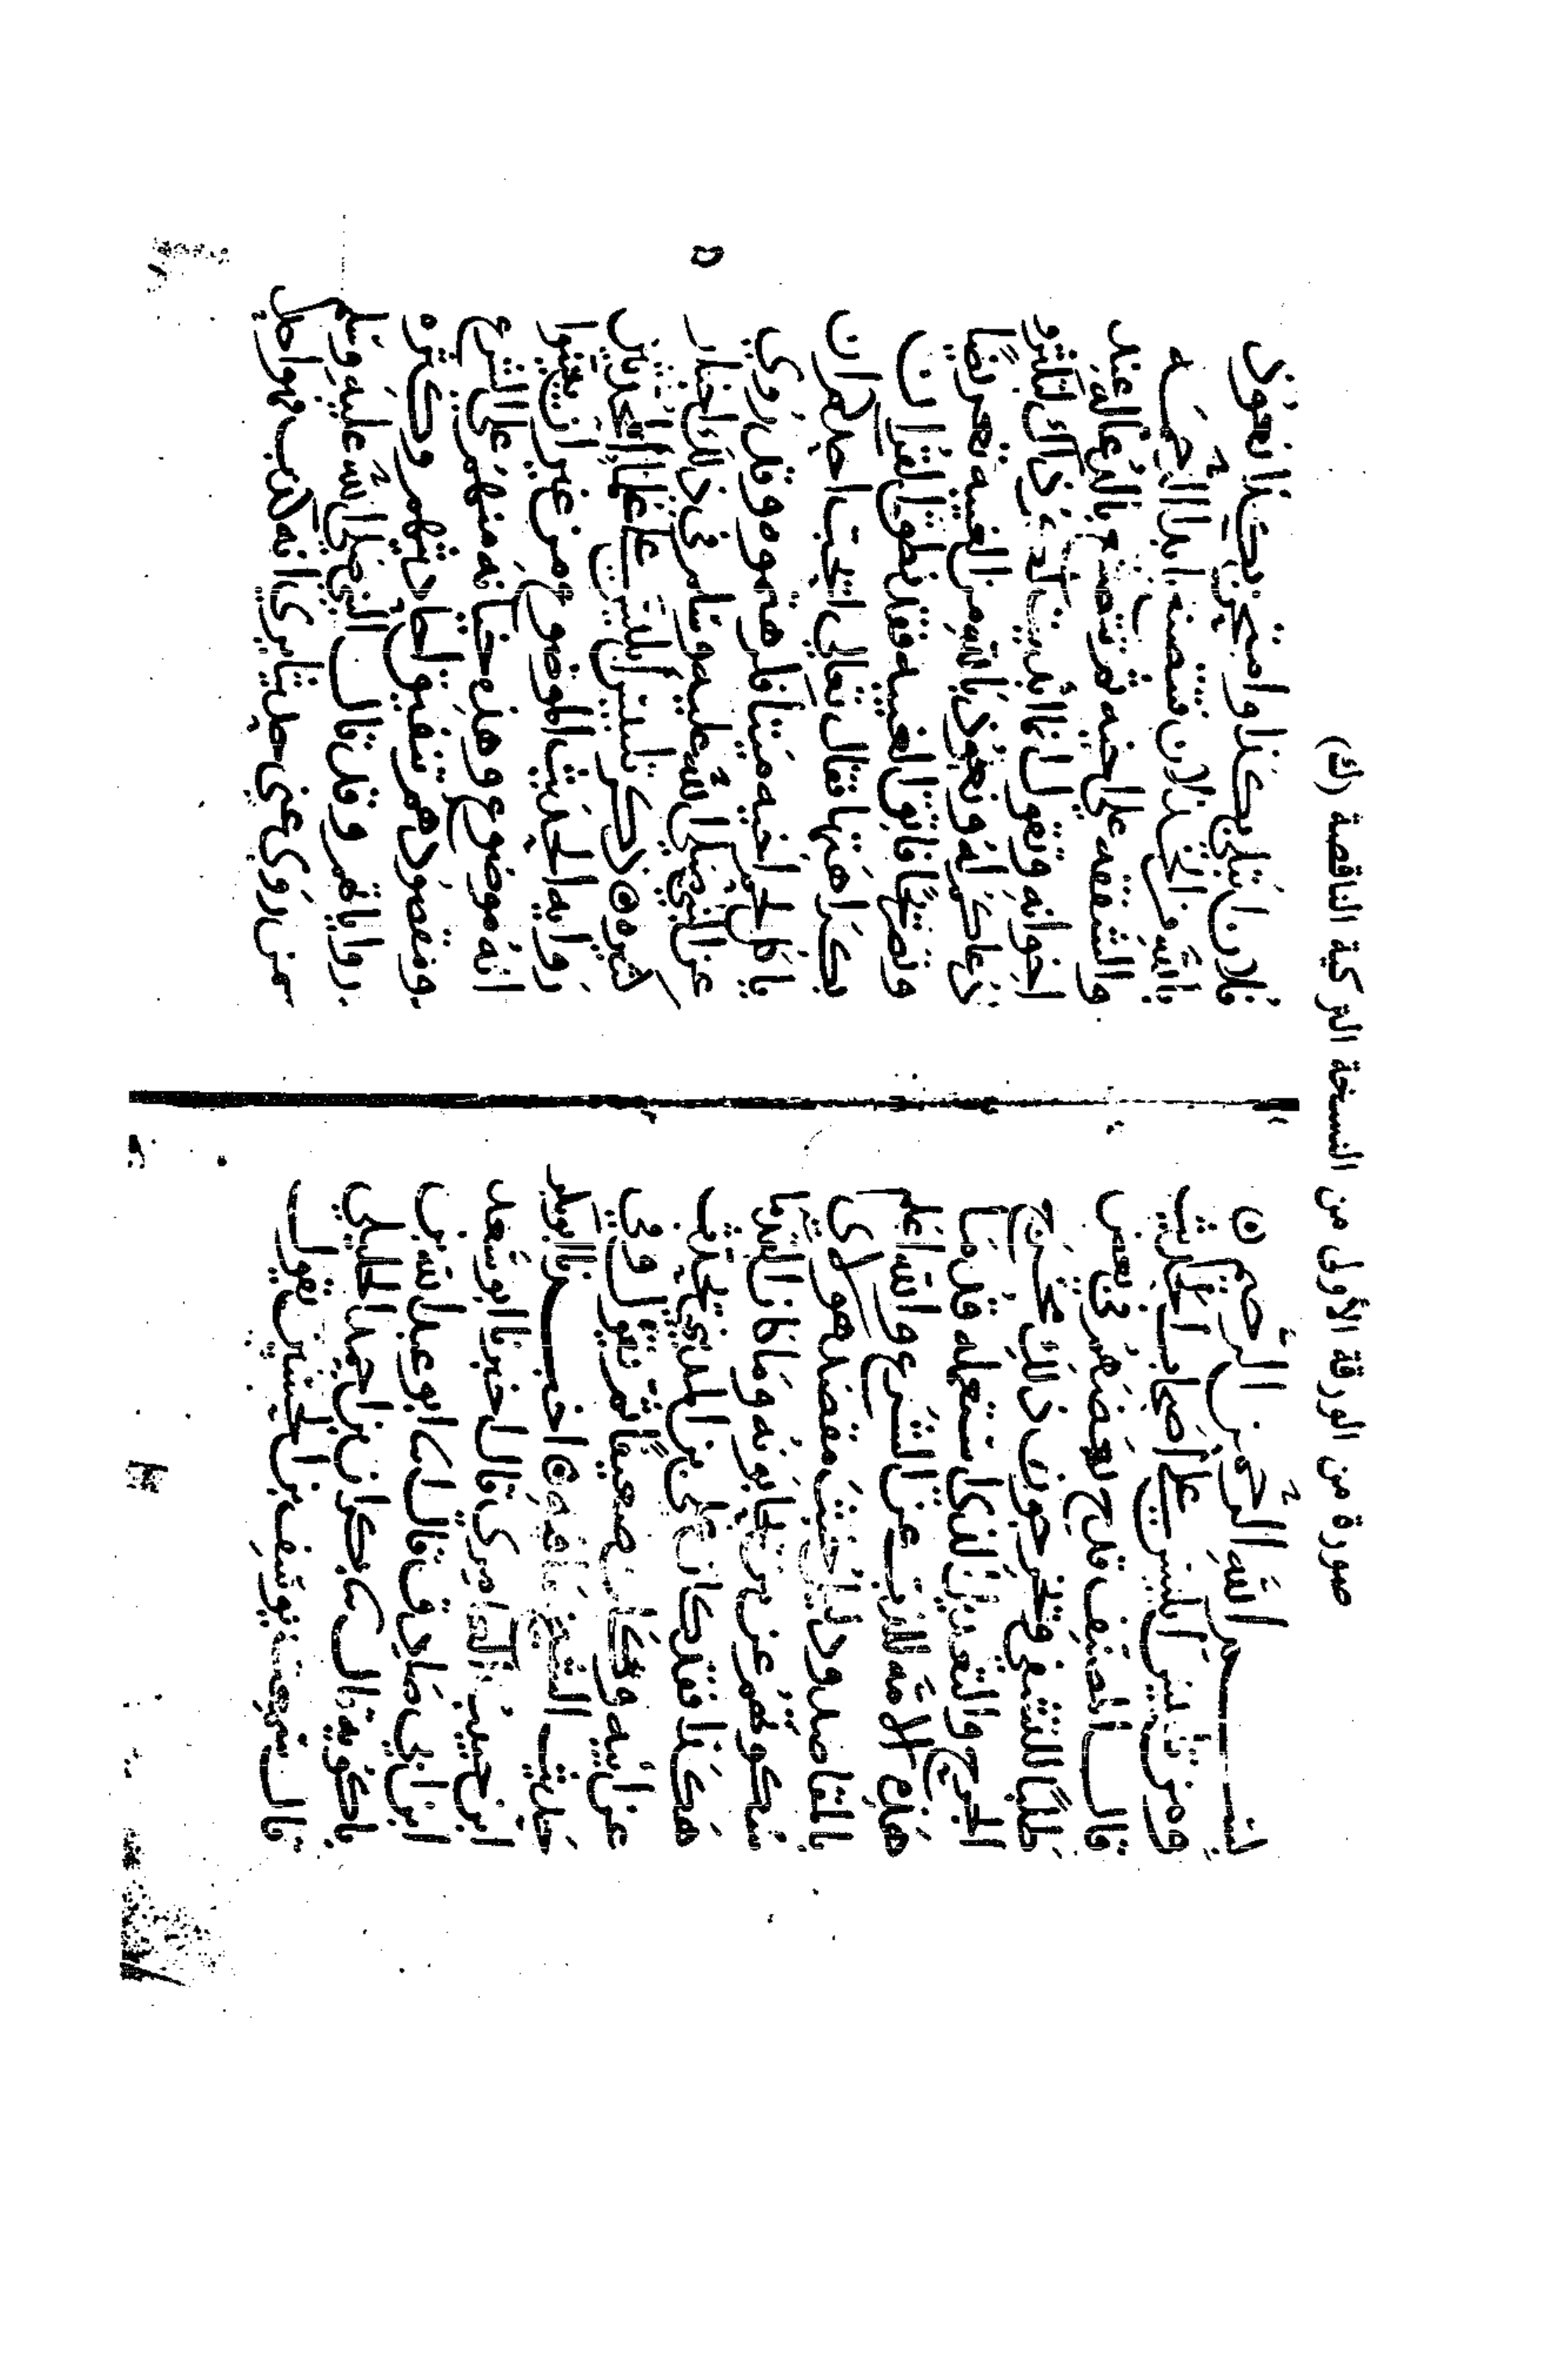 صورة من الورقة الأولى من النسخة التركية الناقصة (ك)
بسم الله الرحمن الرحيم ٥
ومن تلبيس ابليس على اصحاب الحديث
قال المصنف قدح بعضهم في بعض
طلبا للتشفي ويخرجون ذلك مخرج
الجرح والتعديل الذي استعمله قدما
هذه الامة للذب عن الشرع والله اعلم
بالمقاصد ودليل خبث مقصد هولاى
سكوتهم عن من اخذوا عنه وما كان القدما
هكذا فقد كان علي بن المديني يحدث
عن ابيه وكان ضعيفا ثم يقول وفي
حديث الشيخ ما فيه ٥ اخبرنا ابو بكر
ابن حبيب العامري قال اخبرنا ابو سعد
ابن ابي صادق قال انا ابو عبد الله بن
باكويه قال ثنا بكران بن احمد الجيلي
قال سمعت يوسف بن الحسين يقول
٥
فلان ابتلي بكذا وامتحن بكذا نعوذ
بالله من الخذلان
والشفقة على اخيه ثم يتصنع بالدعا له عند
اخوانه ويقول انما ابديت لكم ذاك لتكثروا
دعاكم له ونعوذ بالله من الغيبة تعريضا
وتصريحا فاتقوا الغيبة فقد نطق القران
بكراهتها فقال تعالى ايحب احدكم ان
ياكل لحم اخيه ميتا فكرهتموه وقد روي
عن النبي صلى الله عليه وسلم في ذلك اخبار
كثيرة ٥ ذكر تلبيس ابليس على علما المحدثين
رواية الحديث الموضوع من غير ان يبينوا
انه موضوع وهذه خيانة منهم على الشرع
ومقصودهم تنفيق احاديثهم وكثرة
رواياتهم وقد قال النبي صلى الله عليه وسلم
من روى عني حديثا يرى انه كذب فهو احد